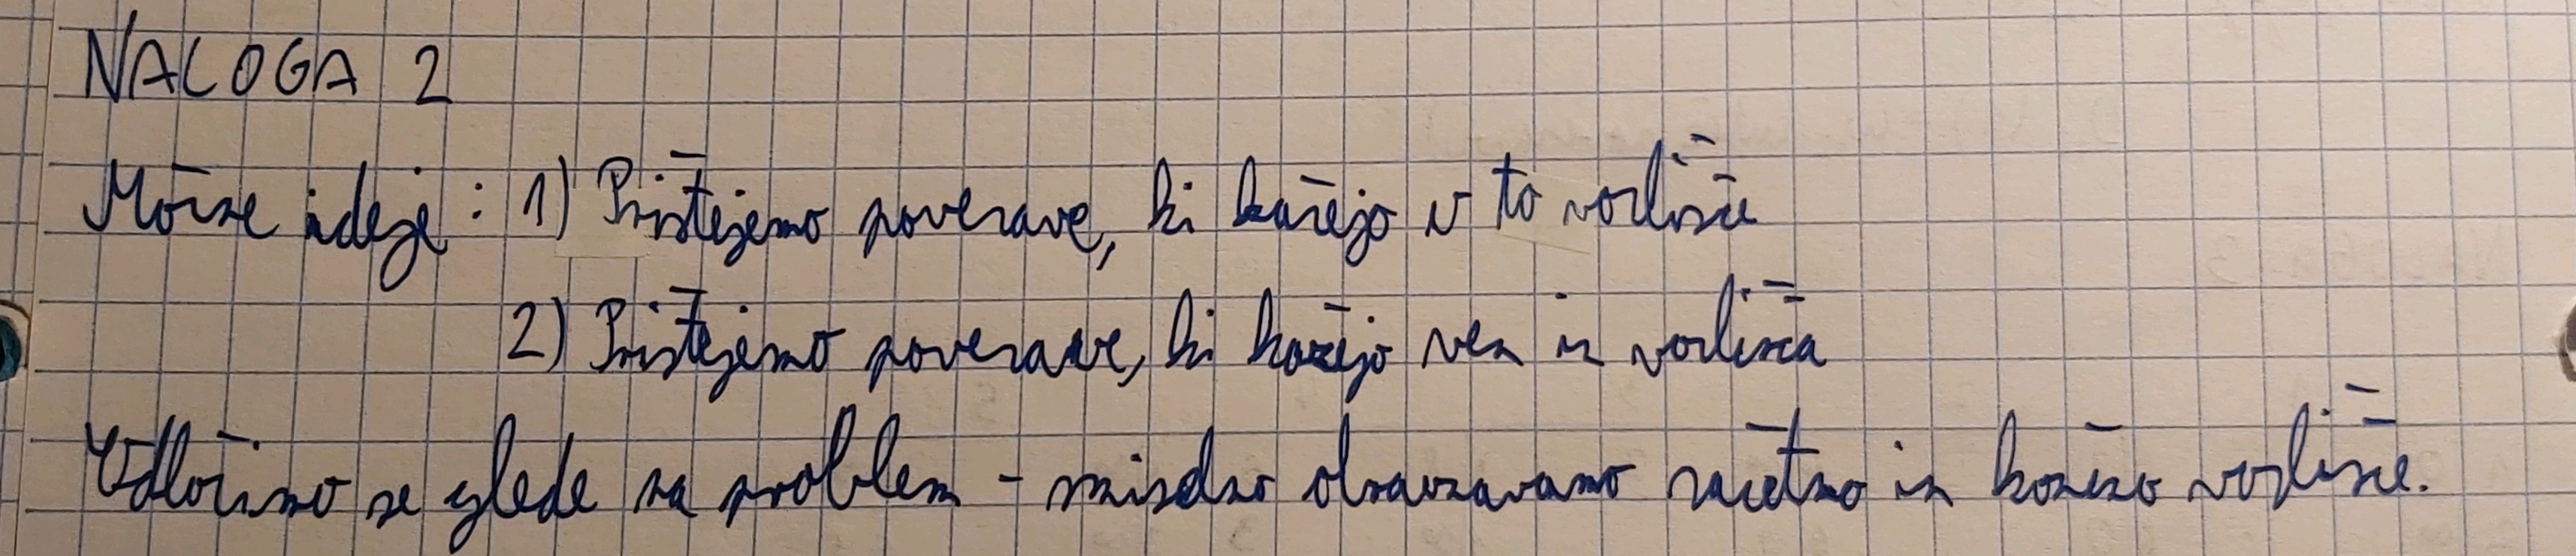 NALOGA 2
Možne ideje: 1) Prištejemo povezave, ki kažejo v to vozlišče
2) Prištejemo povezave, ki kažejo ven iz vozlišča
Odločimo se glede na problem - smiselno obravnavamo začetno in končno vozlišče.